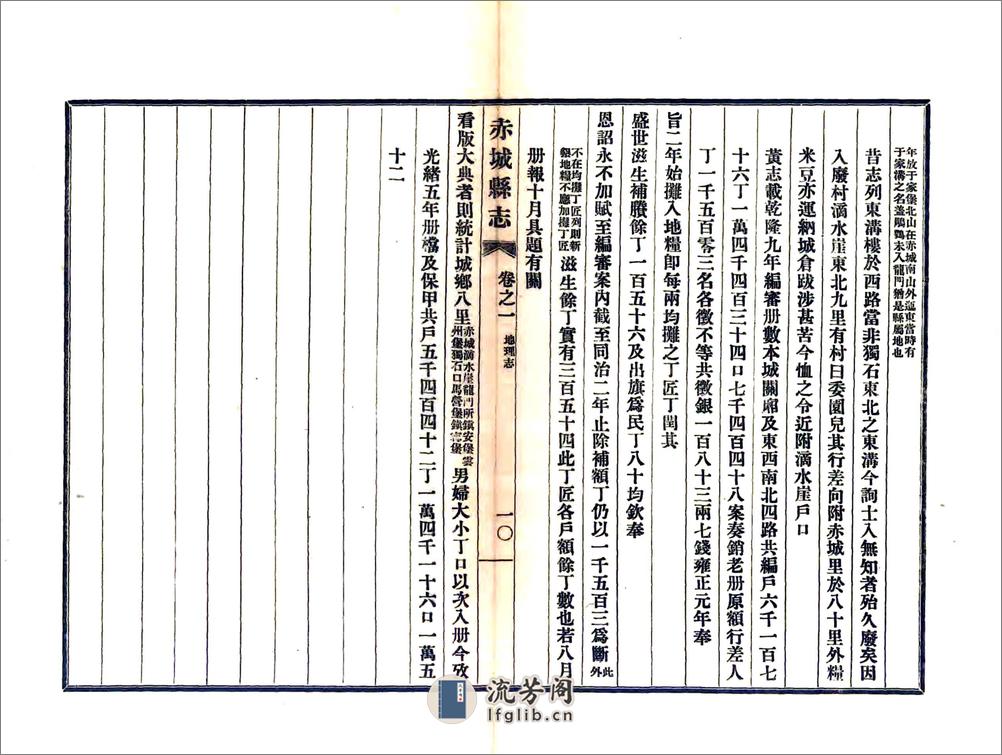 年放于家堡北山在赤城南山外迤東當時有
于家溝之名蓋鵰鶚未入龍門猶是縣屬地也
昔志列東溝樓於西路當非獨石東北之東溝今詢士人無知者殆久廢矣因
入廢村滴水崖東北九里有村曰委園兒其行差向附赤城里於八十里外糧
米豆亦運納城倉跋涉甚苦今恤之令近附滴水崖戶口
黃志載乾隆九年編審册數本城關廂及東西南北四路共編戶六千一百七
十六丁一萬四千四百三十四口七千四百四十八案奏銷老册原額行差人
丁一千五百零三名各徵不等共徵銀一百八十三兩七錢雍正元年奉
旨二年始攤入地糧卽每兩均攤之丁匠丁閏其
盛世滋生補賸餘丁一百五十六及出旗爲民丁八十均欽奉
恩詔永不加賦至編審案內截至同治二年止除補額丁仍以一千五百三爲斷此外
不在均攤丁匠列則新
墾地糧不應加攤丁匠
滋生餘丁實有三百五十四此丁匠各戶額餘丁數也若八月
册報十月具題有關
赤城縣志 卷之一 地理志 一〇
看版大典者則統計城鄉八里
赤城滴水崖龍門所鎭安堡雲
州堡獨石口馬營堡鎭寧堡
男婦大小丁口以次入册今攷
光緒五年册檔及保甲共戶五千四百四十二丁一萬四千一十六口一萬五
十二
流芳阁
lfglib.cn